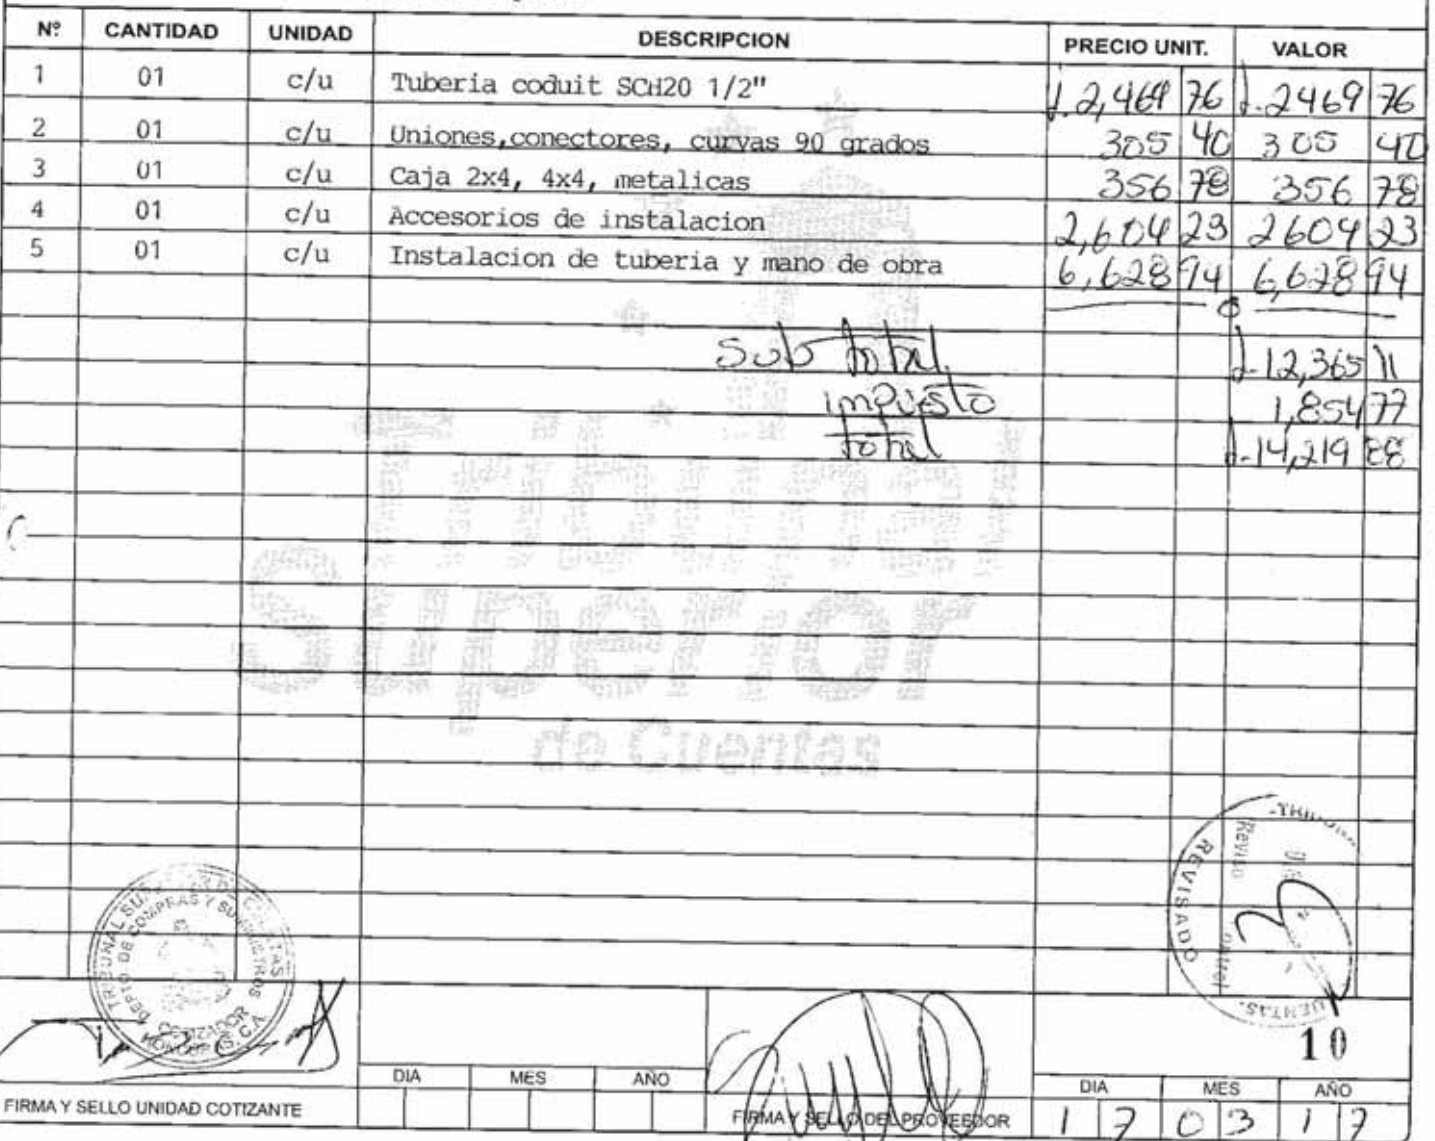 Nº CANTIDAD UNIDAD DESCRIPCION PRECIO UNIT. VALOR
1 01 c/u Tuberia coduit SCH20 1/2" L. 2,469 76 L. 2469 76
2 01 c/u Uniones,conectores, curvas 90 grados 305 40 305 40
3 01 c/u Caja 2x4, 4x4, metalicas 356 78 356 78
4 01 c/u Accesorios de instalacion 2,604 23 2604 23
5 01 c/u Instalacion de tuberia y mano de obra 6,628 94 6,628 94
Sub total L-12,365 11
impuesto 1,854 77
total L-14,219 88
Tribunal
Superior
de Cuentas
TRIBUNAL SUPERIOR DE CUENTAS
DEPTO DE COMPRAS Y SUMINISTROS
COTIZADOR
HONDURAS C.A.
REVISADO
Reviso
10
DIA MES AÑO
DIA MES AÑO
FIRMA Y SELLO UNIDAD COTIZANTE
FIRMA Y SELLO DEL PROVEEDOR
1 7 0 3 1 7